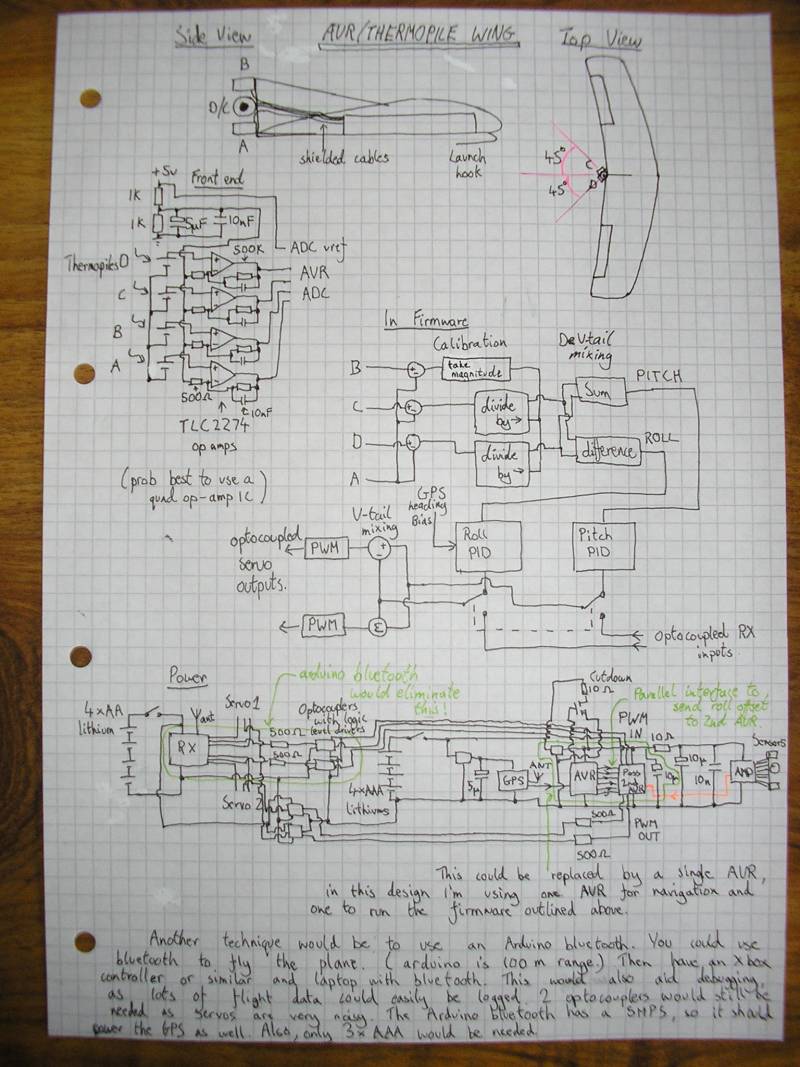 Side View
AVR/THERMOPILE WING
Top View
B
D/C
A
shielded cables
Launch
hook
45°
45°
C
D
+5v
Front end
1K
1K
5µF
10nF
500K
ADC vref
Thermopiles D
AVR
C
ADC
B
A
500Ω
10nF
TLC2274
op amps
(prob best to use a
quad op-amp IC)
In Firmware
Calibration
DeVtail
mixing
B
take
magnitude
C
divide
by→
Sum
PITCH
D
divide
by→
difference
ROLL
A
GPS
heading
Bias
V-tail
mixing
optocoupled
servo
outputs.
PWM
Roll
PID
Pitch
PID
PWM
Σ
Optocoupled RX
inputs
Power
arduino bluetooth
would eliminate
this!
Cutdown
10Ω
Parallel interface to
send roll offset
to 2nd AVR.
4xAA
lithium
ant
Servo 1
Optocoupers
with logic
level drivers
RX
500Ω
500Ω
Servo 2
4xAAA
lithiums
5µ
GPS
ANT
AVR
PWM
IN
10Ω
10µ
10µ
10n
AMP
Sensors
500Ω
PWM
OUT
500Ω
This could be replaced by a single AVR,
in this design I'm using one AVR for navigation and
one to run the firmware outlined above.
Another technique would be to use an Arduino bluetooth. You could use
bluetooth to fly the plane. (arduino is 100 m range.) Then have an Xbox
controller or similar and laptop with bluetooth. This would also aid debugging,
as lots of flight data could easily be logged. 2 optocouplers would still be
needed as servos are very noisy. The Arduino bluetooth has a SMPS, so it should
power the GPS as well. Also, only 3xAAA would be needed.